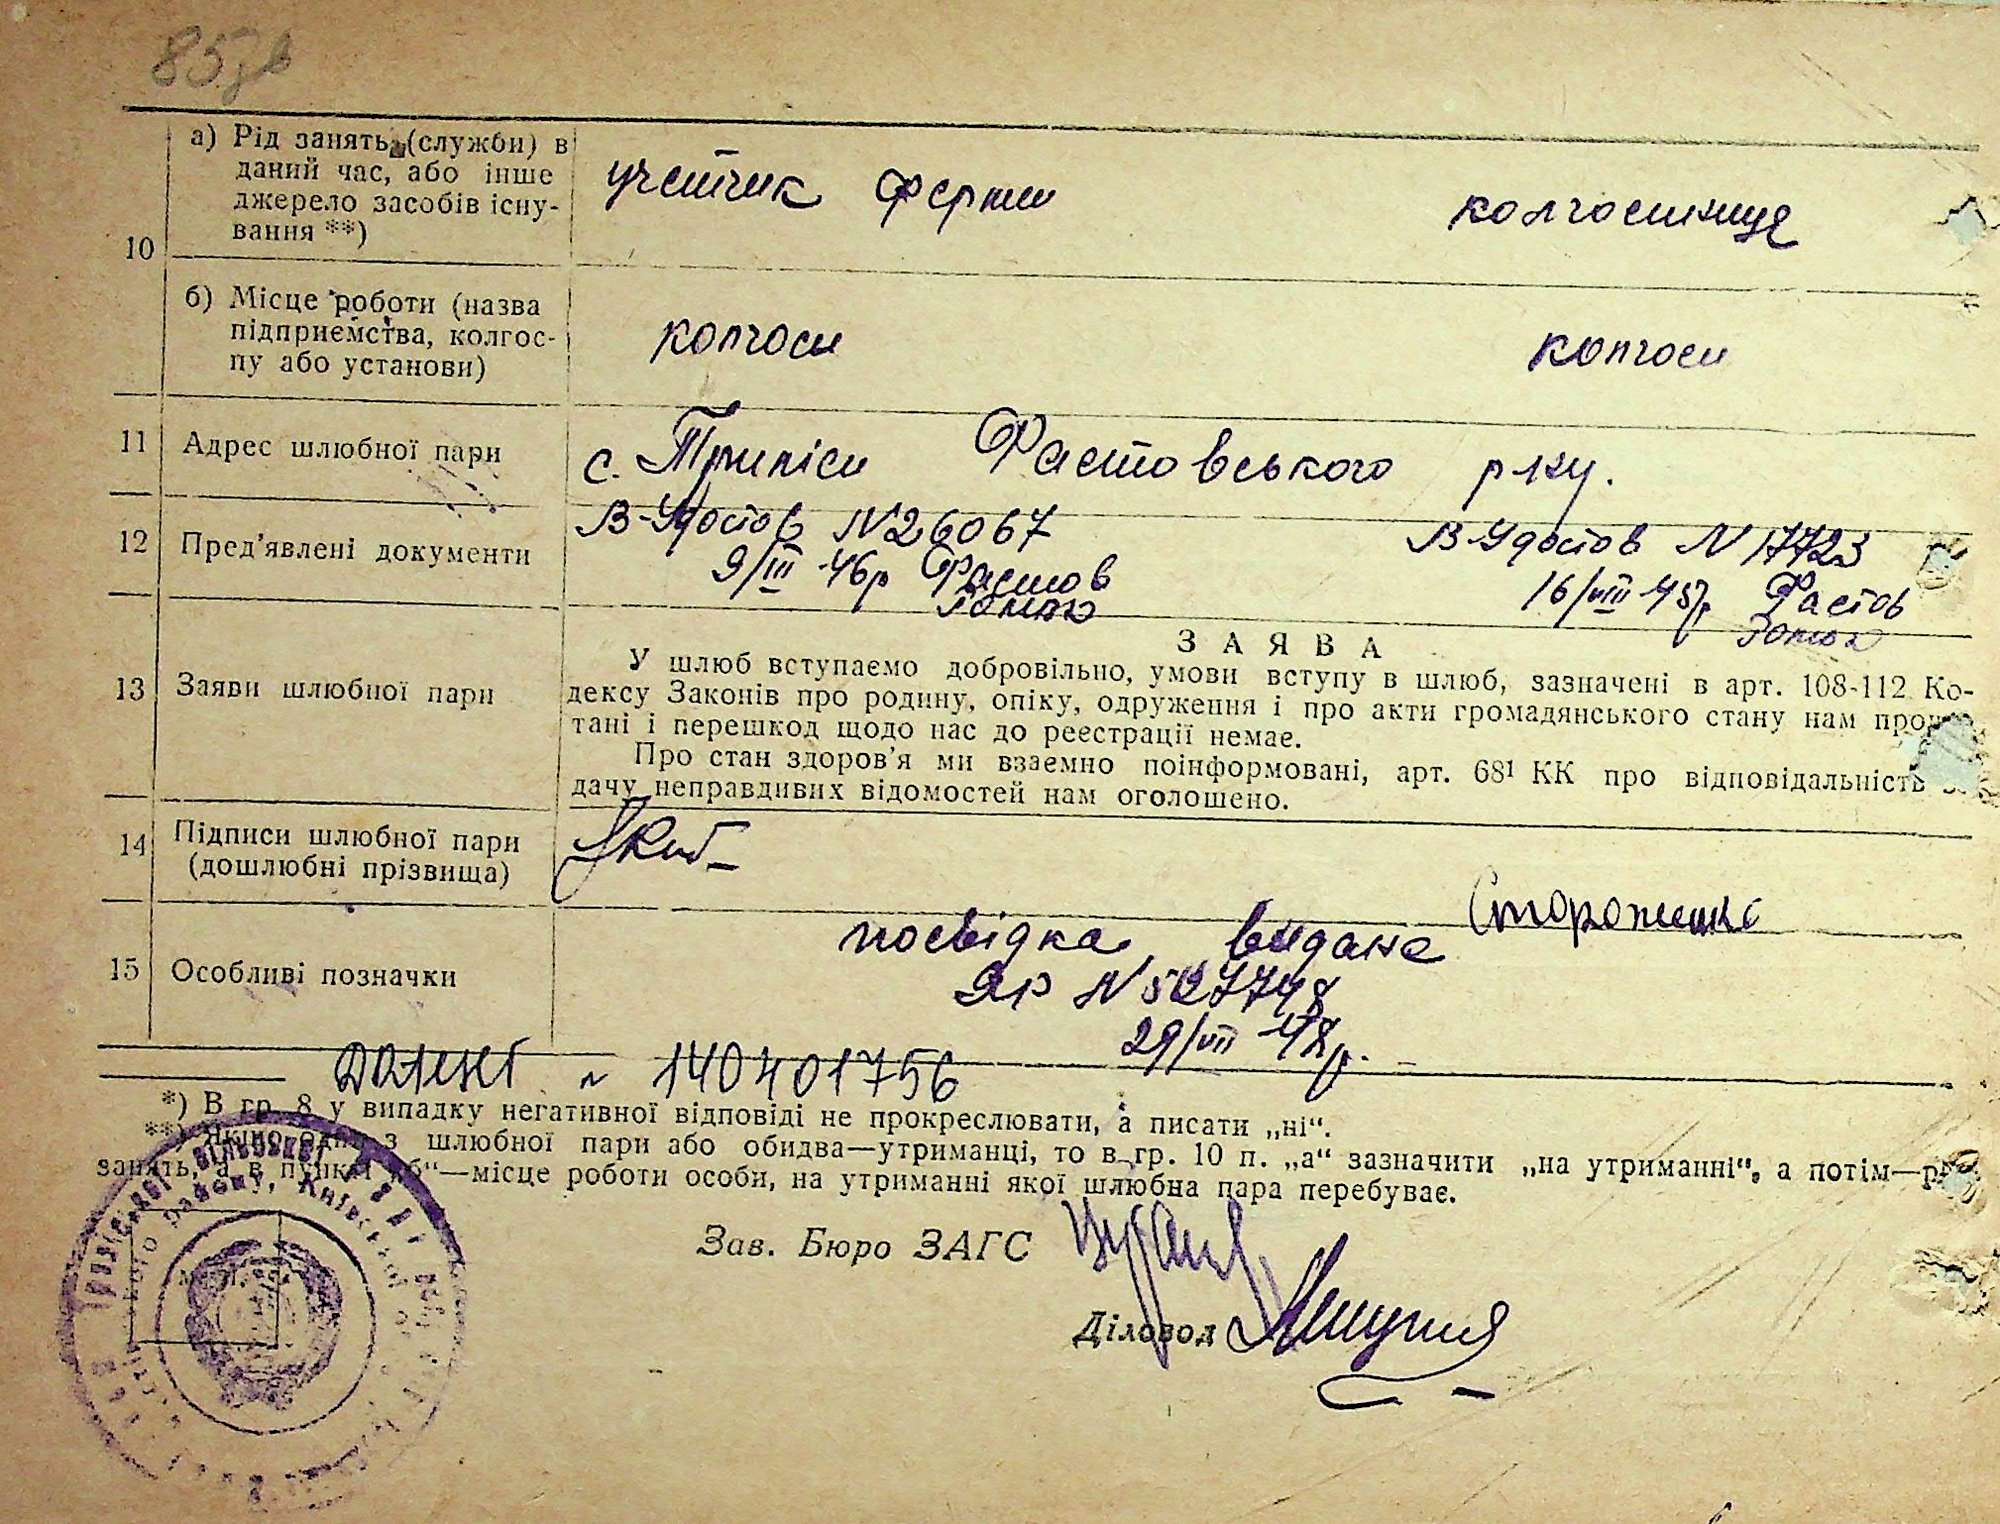 85зв
10
а) Рід занять (служби) в
даний час, або інше
джерело засобів існу-
вання **)
учетчик ферми
колгоспниця
б) Місце роботи (назва
підприємства, колгос-
пу або установи)
колгосп
колгосп
11 Адрес шлюбної пари
с. Триліси Фастовського р-ну.
12 Пред’явлені документи
В-Удостов N 26067
9/III-46р Фастов
В-Удостов N 17723
16/VIII-45р Фастов
З А Я В А
13 Заяви шлюбної пари
У шлюб вступаємо добровільно, умови вступу в шлюб, зазначені в арт. 108-112 Ко-
дексу Законів про родину, опіку, одруження і про акти громадянського стану нам
тані і перешкод щодо нас до реєстрації немає.
Про стан здоров’я ми взаємно поінформовані, арт. 68¹ КК про відповідальність
дачу неправдивих відомостей нам оголошено.
14 Підписи шлюбної пари
(дошлюбні прізвища)
Стороженко
15 Особливі позначки
посвідка видана
N 527748
29/VII-48р.
N 140401756
*) В гр. 8 у випадку негативної відповіді не прокреслювати, а писати „ні“.
**) Якщо один з шлюбної пари або обидва—утриманці, то в гр. 10 п. „а“ зазначити „на утриманні“, а потім—р
занять, а в пункті „б“—місце роботи особи, на утриманні якої шлюбна пара перебуває.
району, Київської
Зав. Бюро ЗАГС
Діловод